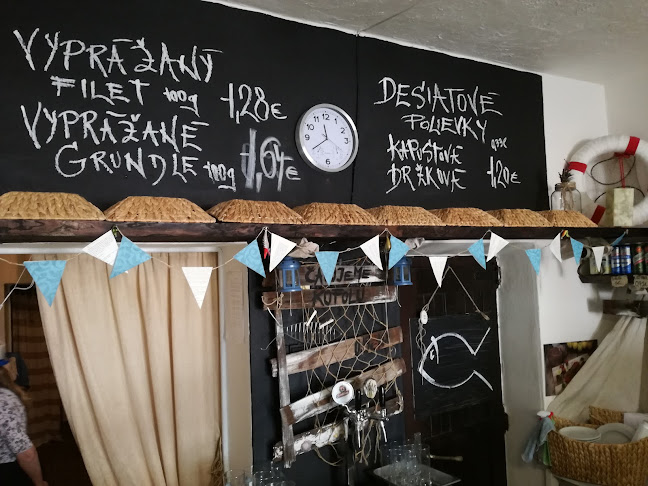 VYPRÁŽANÝ
FILET 100g 1,28€
VYPRÁŽANÉ
GRUNDLE 100g 1,64€
DESIATOVÉ
POLIEVKY
KAPUSTOVÁ 0,33l
DRŽKOVÁ 1,20€
ČAPUJEME
KOFOLU